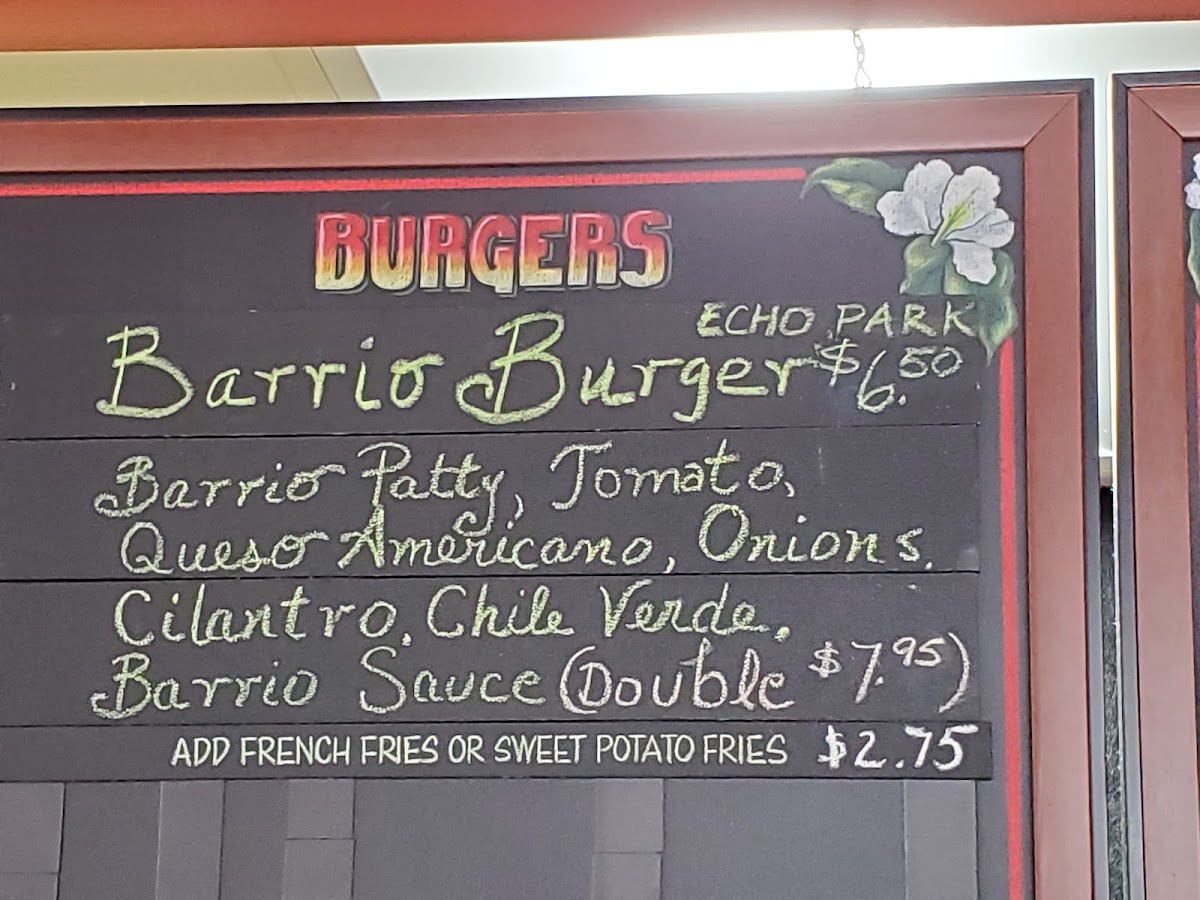 BURGERS
ECHO PARK
Barrio Burger $6.50
Barrio Patty, Tomato,
Queso Americano, Onions,
Cilantro, Chile Verde,
Barrio Sauce (Double $7.95)
ADD FRENCH FRIES OR SWEET POTATO FRIES $2.75